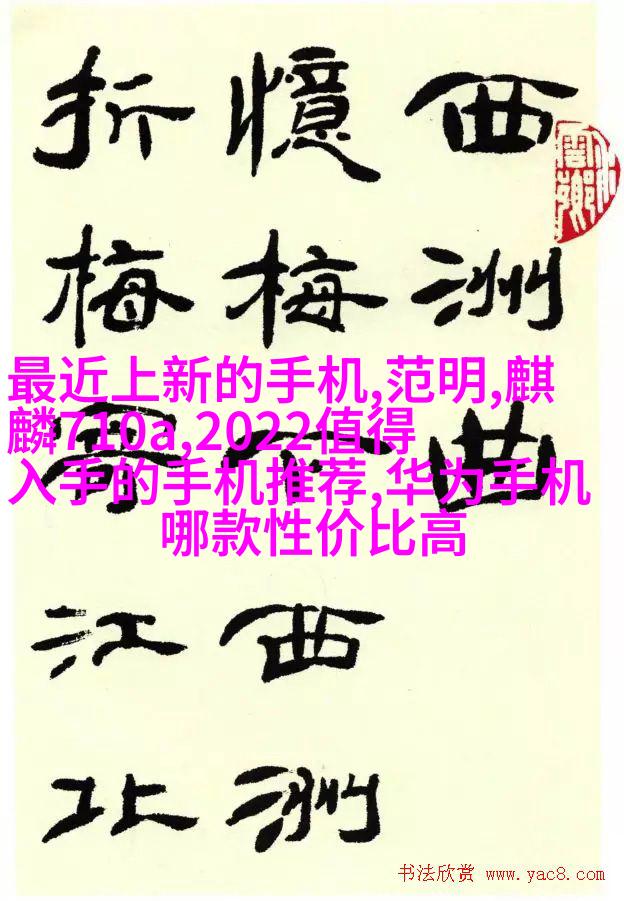 西洲曲
憶梅下西洲
折梅寄江北
最近上新的手机,范明,麒
麟710a,2022值得
入手的手机推荐,华为手机
哪款性价比高
书法欣赏 www.yac8.com